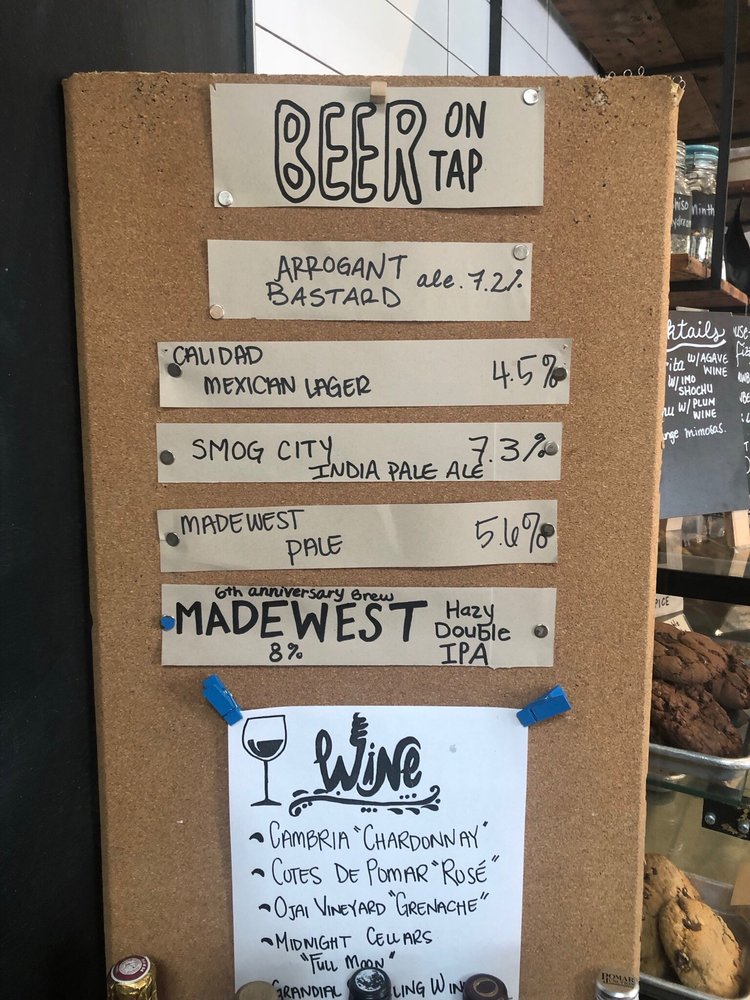 BEER ON TAP
ARROGANT ale. 7.2%
BASTARD
CALIDAD
MEXICAN LAGER 4.5%
SMOG CITY 7.3%
INDIA PALE ALE
MADEWEST
PALE 5.6%
6th anniversary Brew
MADEWEST Hazy Double IPA
8%
Wine
CAMBRIA "CHARDONNAY"
COTES DE POMAR "ROSÉ"
OJAI VINEYARD "GRENACHE"
MIDNIGHT CELLARS
"FULL MOON"
GRANDIAL LING WINE
ktails
ita W/AGAVE
WINE
W/IMO
SHOCHU
W/ PLUM
WINE
nge mimosas.
POMAR